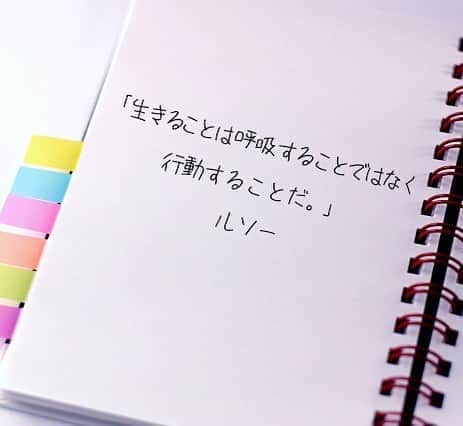 「生きることは呼吸することではなく
行動することだ。」
ルソー